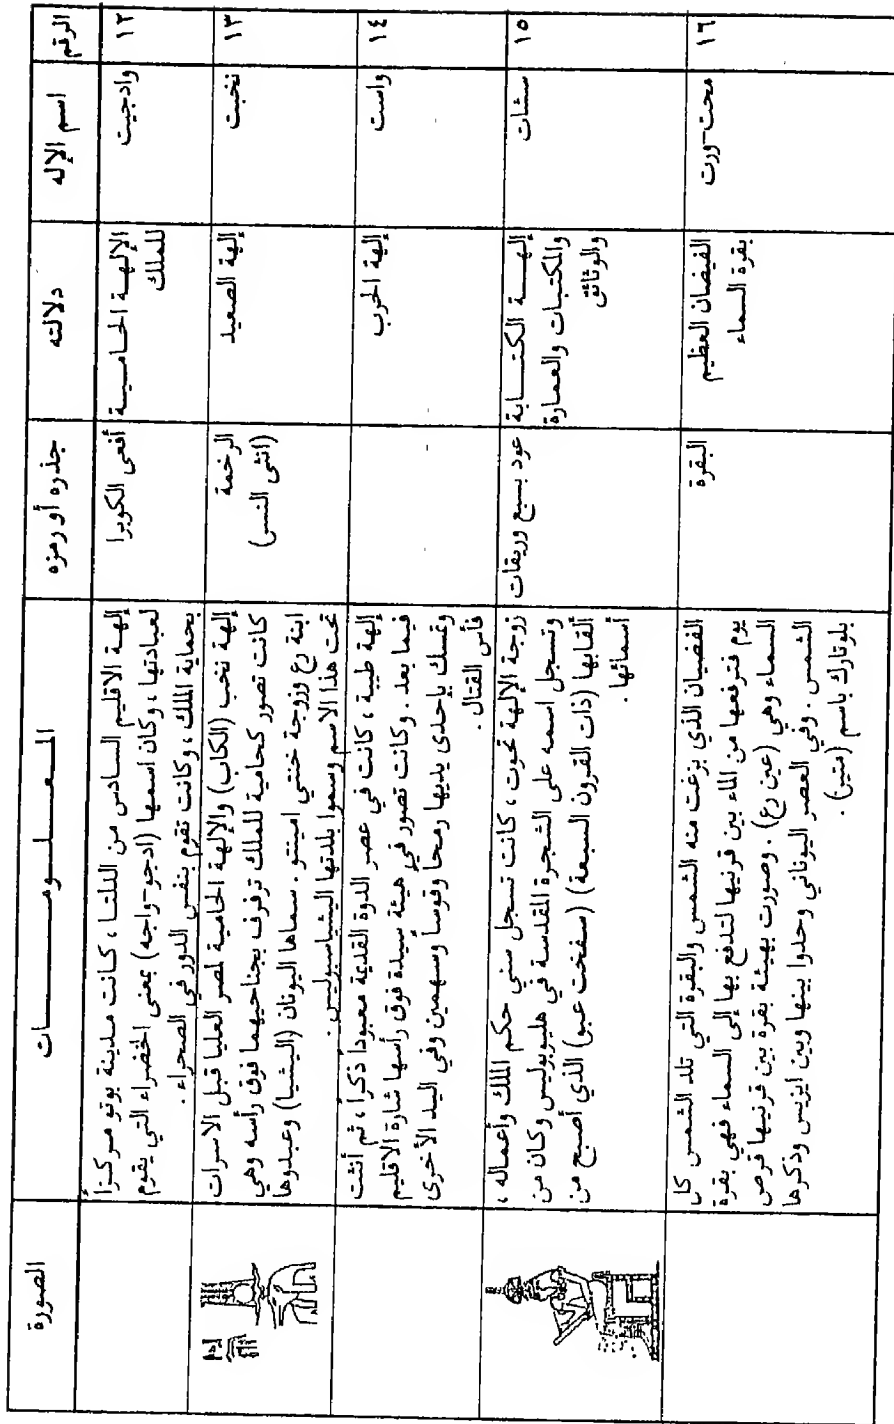 الرقم
اسم الإله
دلالته
جذره أو رمزه
المعلومات
الصورة
١٢
وادجيت
الإلهة الحامية
للملك
أفعى الكوبرا
إلهة الاقليم السادس من الدلتا ، كانت مدينة بوتو مركزاً
لعبادتها ، وكان اسمها (ادجو-واجه) بمعنى الخضراء التي يقوم
بحماية الملك ، وكانت تقوم بنفس الدور في الصحراء .
١٣
نخبت
إلهة الصعيد
الرخمة
(انثى النسر)
إلهة نخب (الكاب) والإلهة الحامية لمصر العليا قبل الاسرات
كانت تصور كحامية للملك ترفرف بجناحيهما فوق رأسه وهي
ابنة رع وزوجة خنتي امينتو . سماها اليونان (اليثيا) وعبدوها
تحت هذا الاسم وسموا بلدتها اليثياسبوليس .
١٤
واست
إلهة الحرب
إلهة طيبة ، كانت في عصر الدوة القديمة معبوداً ذكراً ، ثم أنثت
فيما بعد . وكانت تصور في هيئة سيدة فوق رأسها شارة الاقليم
وتمسك بإحدى يديها رمحا وقوساً وسهمين وفي اليد الأخرى
فأس القتال .
١٥
سشات
إلهة الكتابة
والمكتبات والعمارة
والوثائق
عود بسبع وريقات
زوجة الإلهة تحوت ، كانت تسجل سني حكم الملك وأعماله ،
وتسجل اسمه على الشجرة المقدسة في هليوبوليس وكان من
ألقابها (ذات القرون السبعة) (سفخت عبو) الذي أصبح من
أسمائها .
١٦
محت-ورت
الفيضان العظيم
بقرة السماء
البقرة
الفضيان الذي بزغت منه الشمس والبقرة التي تلد الشمس كل
يوم فترفعها من الماء بين قرنيها لتدفع بها إلى السماء فهي بقرة
السماء وهي (عين رع) . وصورت بهيئة بقرة بين قرنيها قرص
الشمس . وفي العصر اليوناني وحدوا بينها وبين ايزيس وذكرها
بلوتارك باسم (متير) .